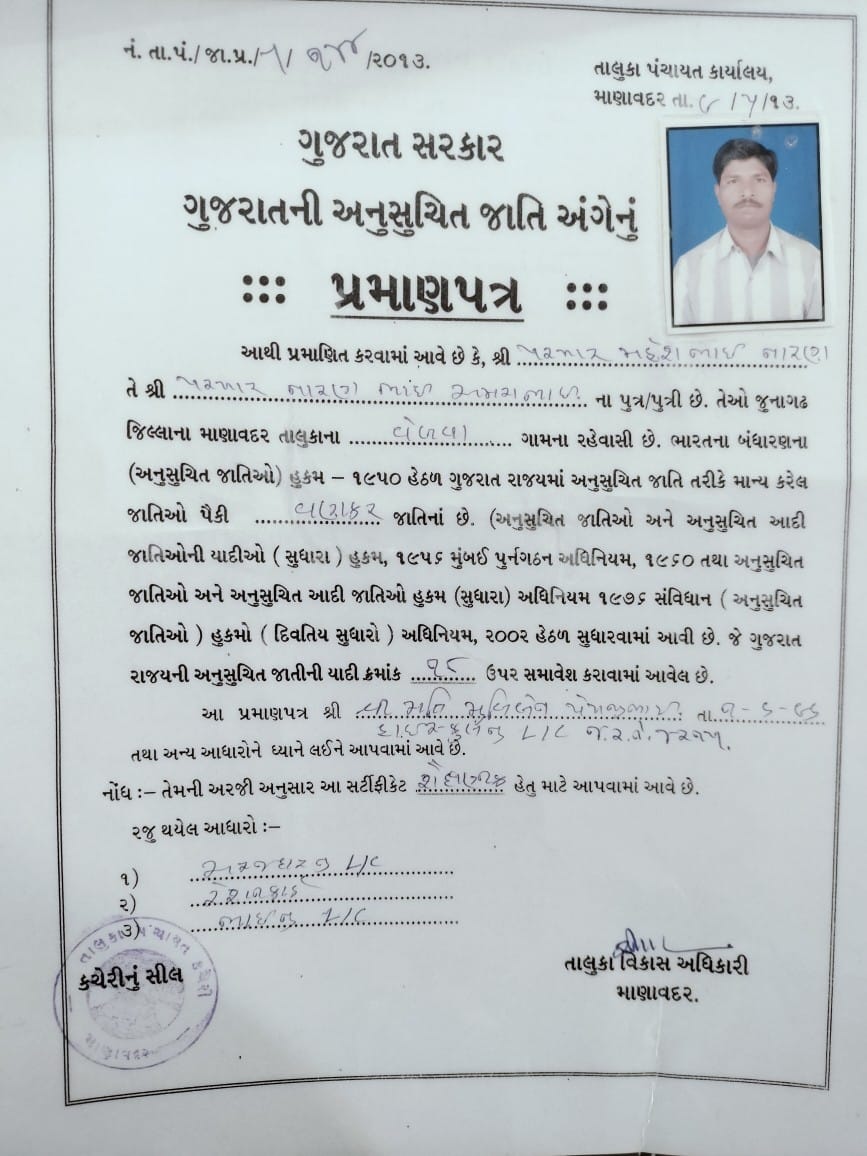 નં. તા.પં./જા.પ્ર./ /૨૦૧૩.
તાલુકા પંચાયત કાર્યાલય,
માણાવદર તા. ૬/૫/૧૩.
ગુજરાત સરકાર
ગુજરાતની અનુસુચિત જાતિ અંગેનું
::: પ્રમાણપત્ર :::
આથી પ્રમાણિત કરવામાં આવે છે કે, શ્રી પરમાર મહેશભાઈ નારણ
તે શ્રી પરમાર નારણ ભાઈ ના પુત્ર/પુત્રી છે. તેઓ જુનાગઢ
જિલ્લાના માણાવદર તાલુકાના વેળવા ગામના રહેવાસી છે. ભારતના બંધારણના
(અનુસુચિત જાતિઓ) હુકમ – ૧૯૫૦ હેઠળ ગુજરાત રાજયમાં અનુસુચિત જાતિ તરીકે માન્ય કરેલ
જાતિઓ પૈકી વણકર જાતિનાં છે. (અનુસુચિત જાતિઓ અને અનુસુચિત આદી
જાતિઓની યાદીઓ ( સુધારા ) હુકમ, ૧૯૫૬ મુંબઈ પુર્નગઠન અધિનિયમ, ૧૯૬૦ તથા અનુસુચિત
જાતિઓ અને અનુસુચિત આદી જાતિઓ હુકમ (સુધારા) અધિનિયમ ૧૯૭૬ સંવિધાન ( અનુસુચિત
જાતિઓ ) હુકમો ( દિવતિય સુધારો ) અધિનિયમ, ૨૦૦૨ હેઠળ સુધારવામાં આવી છે. જે ગુજરાત
રાજયની અનુસુચિત જાતીની યાદી ક્રમાંક ઉપર સમાવેશ કરાવામાં આવેલ છે.
આ પ્રમાણપત્ર શ્રી તા.
હાઈસ્કુલનું L/C જ.ર.નં.
તથા અન્ય આધારોને ધ્યાને લઈને આપવામાં આવે છે.
નોંધ :– તેમની અરજી અનુસાર આ સર્ટીફીકેટ શૈક્ષણીક હેતુ માટે આપવામાં આવે છે.
રજુ થયેલ આધારો :–
૧) અરજદારનુ L/C
૨) રેશનકાર્ડ
૩) ભાઈનુ L/C
તાલુકા પંચાયત કચેરી
કચેરીનું સીલ
માણાવદર
તાલુકા વિકાસ અધિકારી
માણાવદર.